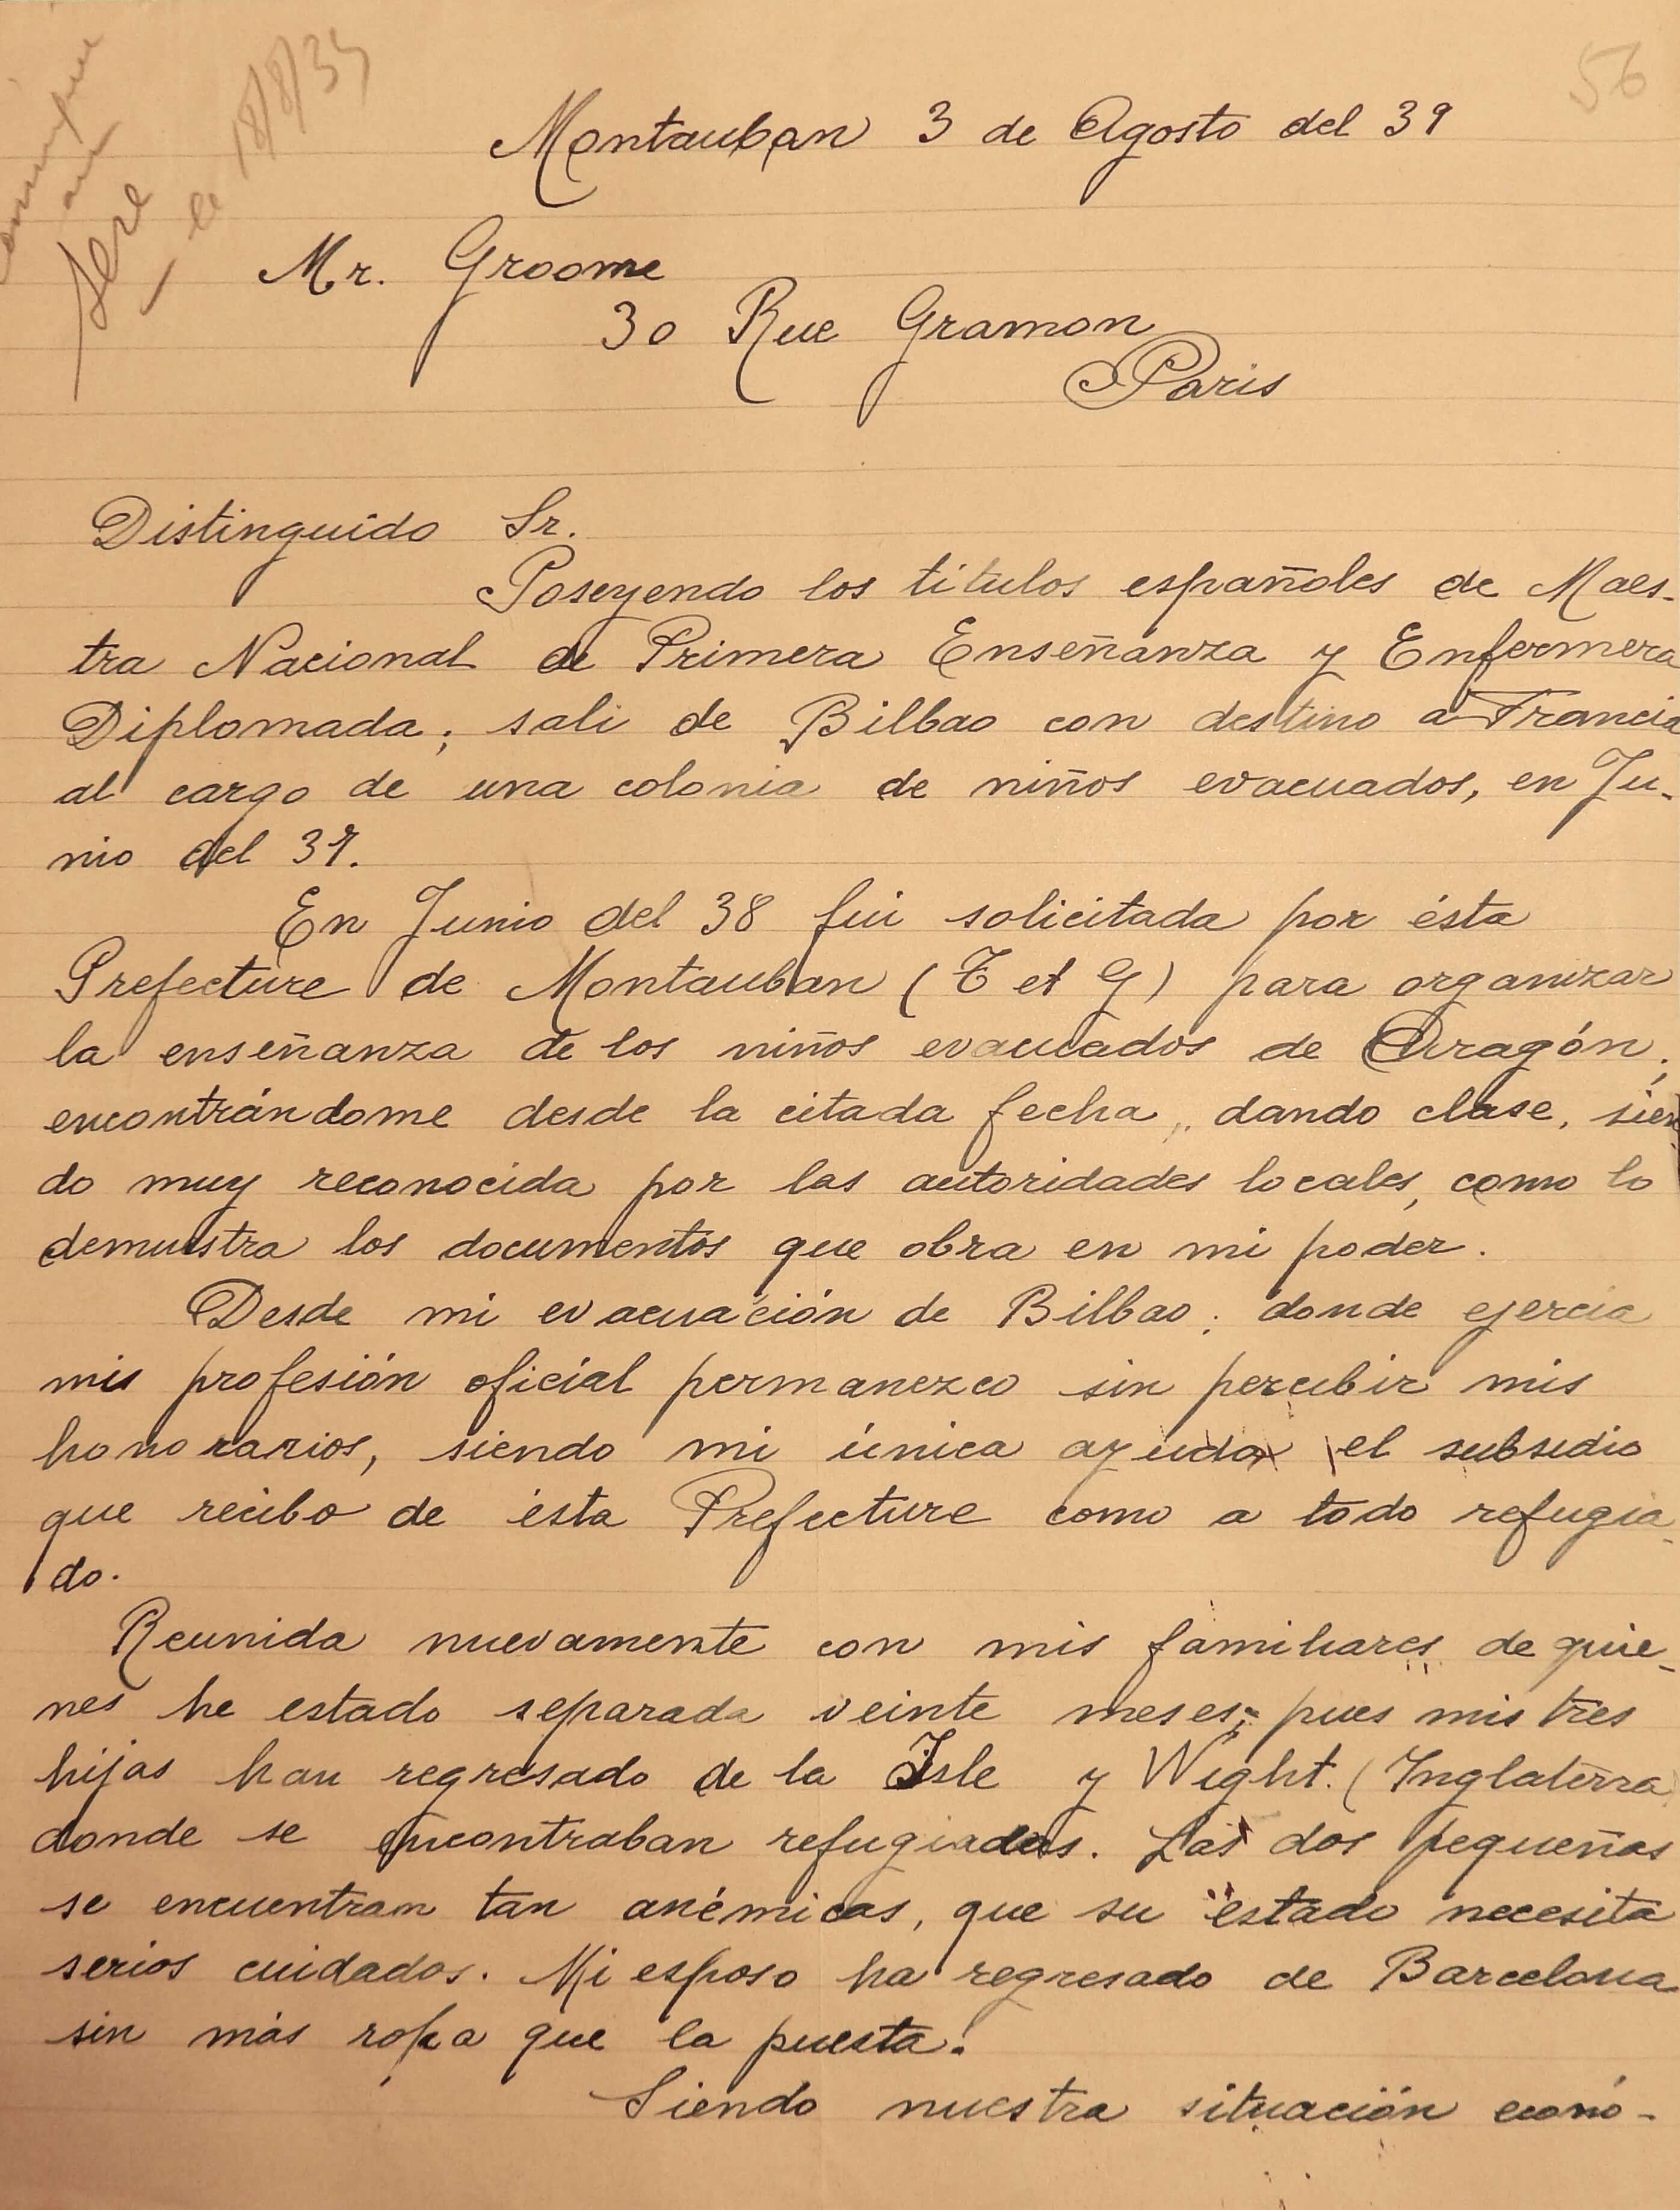 56
le 18/8/39
Montauban 3 de Agosto del 39
Mr. Groome
30 Rue Gramon
Paris
Distinguido Sr.
Poseyendo los titulos españoles de Maes-
tra Nacional de Primera Enseñanza y Enfermera
Diplomada; sali de Bilbao con destino a Francia
al cargo de una colonia de niños evacuados, en Ju-
nio del 37.
En Junio del 38 fui solicitada por ésta
Prefecture de Montauban (T et G) para organizar
la enseñanza de los niños evacuados de Aragón;
encontrándome desde la citada fecha, dando clase, sien
do muy reconocida por las autoridades locales, como lo
demuestra los documentos que obra en mi poder.
Desde mi evacuación de Bilbao; donde ejercia
mis profesión oficial permanezco sin percibir mis
honorarios, siendo mi única ayuda el subsidio
que recibo de ésta Prefecture como a todo refugia-
do.
Reunida nuevamente con mis familiares de quie-
nes he estado separada veinte meses; pues mis tres
hijas han regresado de la Isle y Wight. (Inglaterra
donde se encontraban refugiadas. Las dos pequeñas
se encuentran tan anémicas, que su estado necesita
serios cuidados. Mi esposo ha regresado de Barcelona
sin más ropa que la puesta.
Siendo nuestra situación econó-